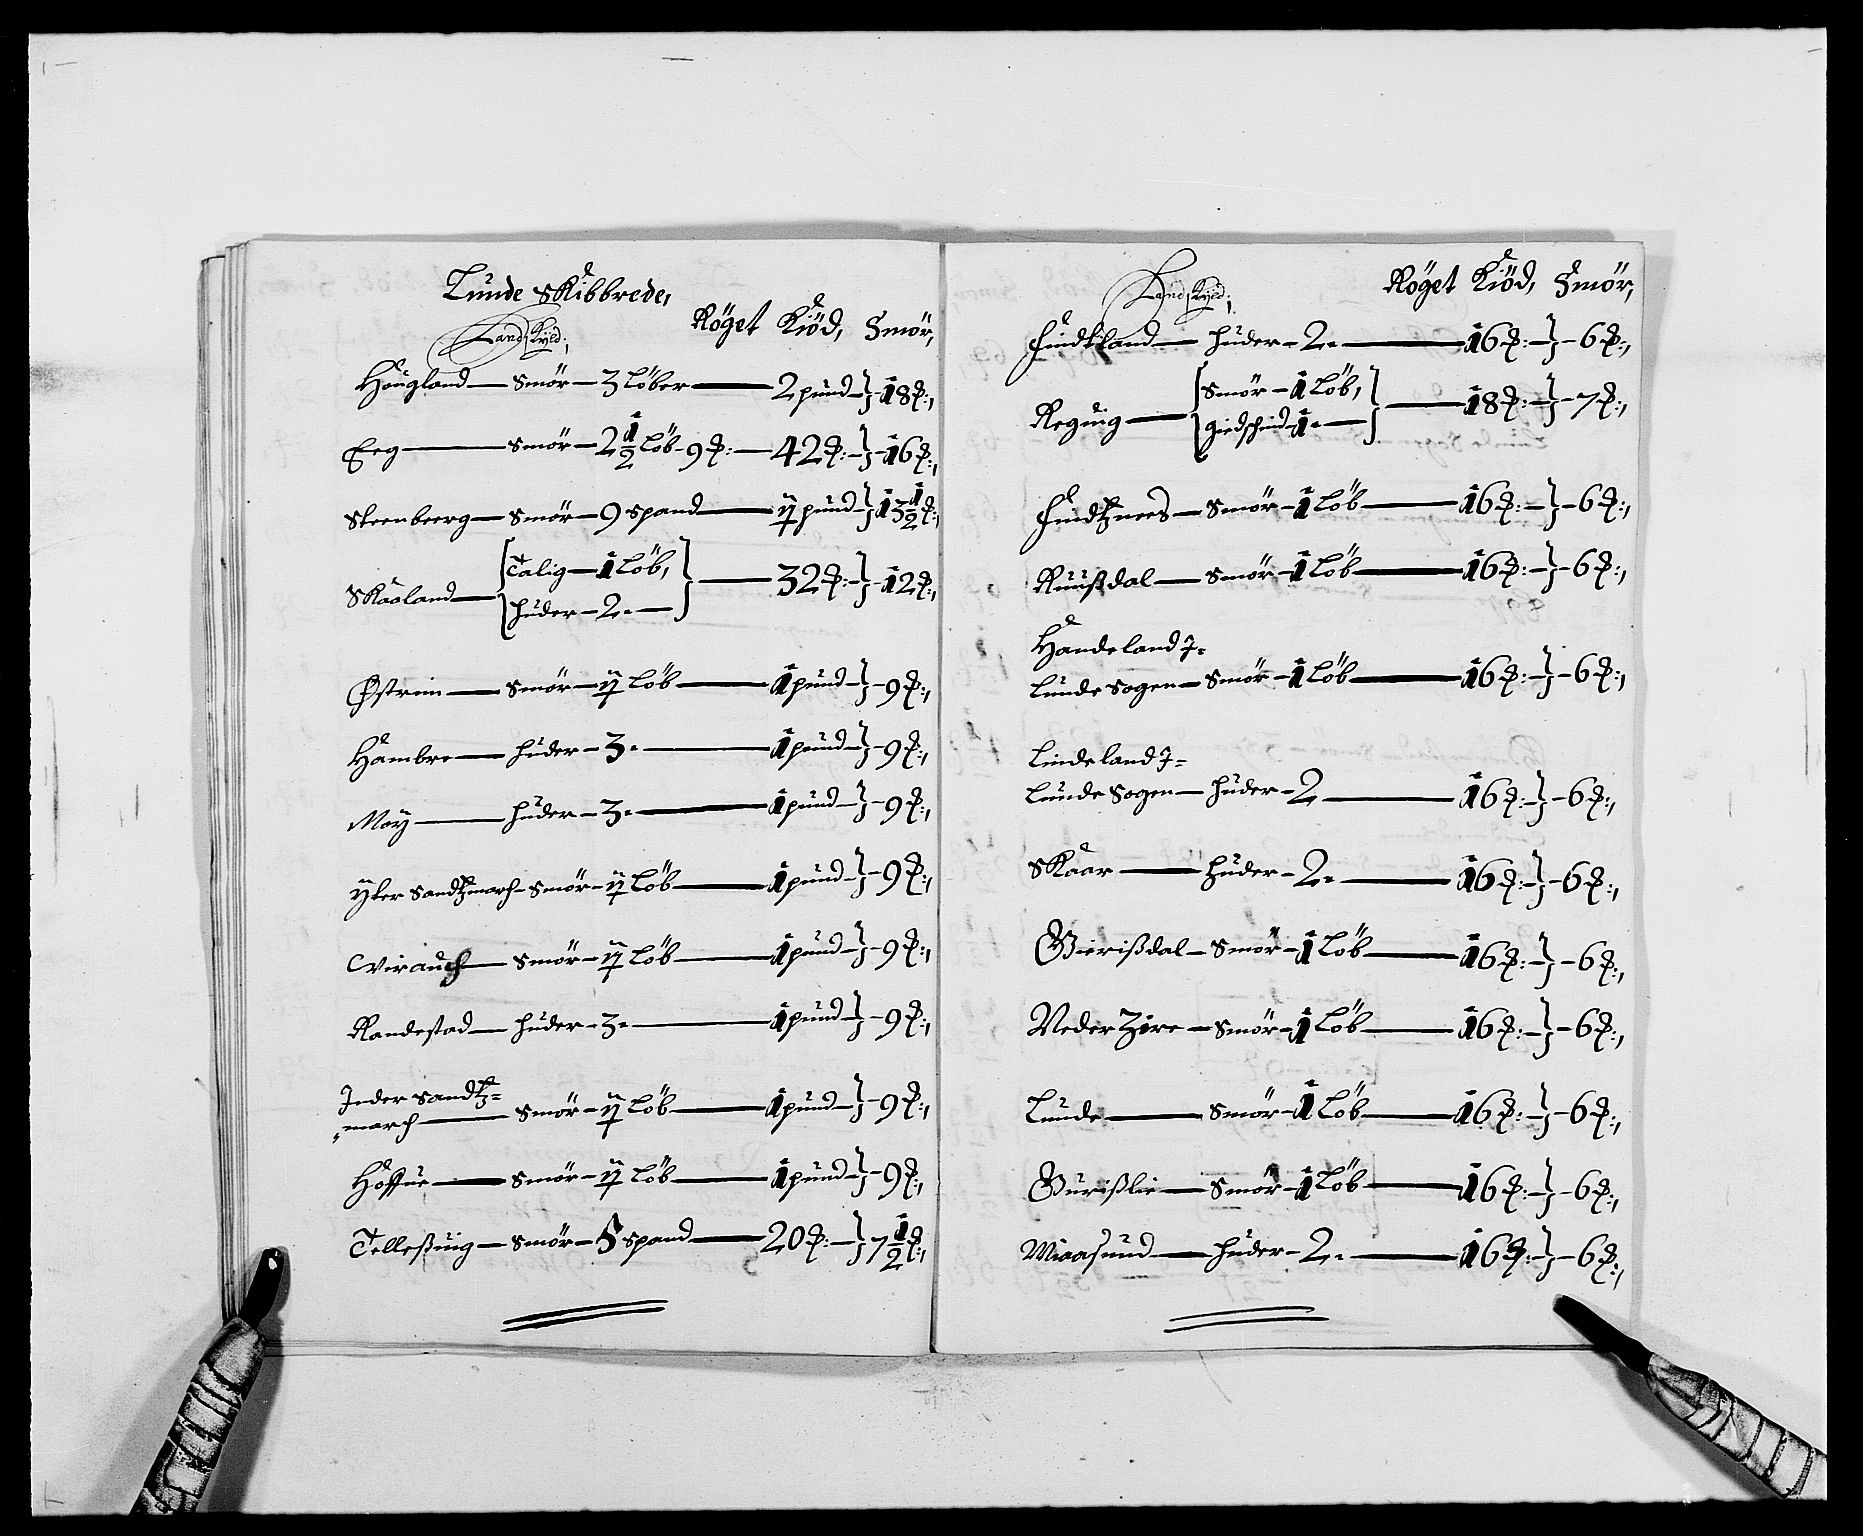 Lunde Skibbrede,
Landskyld; Röget Kiöd, Smör,
Haugland — Smör — 3 Löber — 2 pund } — 18 ℔:,
Eeg — Smör — 2 1/2 Löb — 9 ℔: — 42 ℔: — } — 16 ℔:,
Steenbeerg — Smör — 9 spand — ÿ pund } 13 1/2 ℔:,
Skaaland — { Talig — 1 Löb, } — 32 ℔: — } — 12 ℔:,
huder — 2. —
Østrim — Smör — ÿ Löb — 1 pund } — 9 ℔:,
Hambre — huder — 3. — 1 pund } — 9 ℔:,
Moÿ — huder — 3. — 1 pund } — 9 ℔:,
ÿter Sandtzmarch — Smör — ÿ Löb — 1 pund } — 9 ℔:,
Virauch — Smör — ÿ Löb — 1 pund } — 9 ℔:,
Randestad — huder — 3. — 1 pund } — 9 ℔:,
Inder Sandtz=
march — Smör — ÿ Löb — 1 pund } — 9 ℔:,
Hoffue — Smör — ÿ Löb — 1 pund } — 9 ℔:,
Telleßuig — Smör — 5 spand — 20 ℔: — } 7 1/2 ℔:,
Landskyld; Röget Kiöd, Smör,
huder — 2. — 16 ℔: — } — 6 ℔:,
Reguig — { Smör — 1 Löb, } — 18 ℔: — } — 7 ℔:,
giedskind — 1. —
Findtznees — Smör — 1 Löb — 16 ℔: — } — 6 ℔:,
Ruußdal — Smör — 1 Löb — 16 ℔: — } — 6 ℔:,
Handeland J=
Lunde Sogen — Smör — 1 Löb — 16 ℔: — } — 6 ℔:,
Lindeland J=
Lunde Sogen — huder — 2 — 16 ℔: — } — 6 ℔:,
Skaar — huder — 2. — 16 ℔: — } — 6 ℔:,
Gierißdal — Smör — 1 Löb — 16 ℔: — } — 6 ℔:,
Neder Zire — Smör — 1 Löb — 16 ℔: — } — 6 ℔:,
Lunde — Smör — 1 Löb — 16 ℔: — } — 6 ℔:,
Gurißlie — Smör — 1 Löb — 16 ℔: — } — 6 ℔:,
Miaasund — huder — 2. — 16 ℔: — } — 6 ℔:,